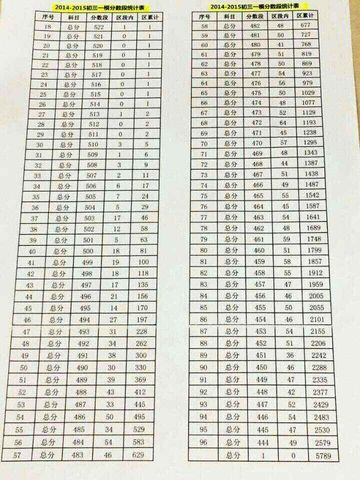 2014-2015初三一模分数段统计表
序号 科目 分数段 区段内 区累计
18 总分 522 1 1
19 总分 521 0 1
20 总分 520 0 1
21 总分 519 0 1
22 总分 518 0 1
23 总分 517 0 1
24 总分 516 0 1
25 总分 515 0 1
26 总分 514 0 1
27 总分 513 1 2
28 总分 512 0 2
29 总分 511 0 2
30 总分 510 3 5
31 总分 509 1 6
32 总分 508 3 9
33 总分 507 2 11
34 总分 506 6 17
35 总分 505 7 24
36 总分 504 5 29
37 总分 503 17 46
38 总分 502 12 58
39 总分 501 5 63
40 总分 500 18 81
41 总分 499 19 100
42 总分 498 18 118
43 总分 497 17 135
44 总分 496 21 156
45 总分 495 14 170
46 总分 494 27 197
47 总分 493 31 228
48 总分 492 34 262
49 总分 491 38 300
50 总分 490 30 330
51 总分 489 39 369
52 总分 488 43 412
53 总分 487 33 445
54 总分 486 50 495
55 总分 485 34 529
56 总分 484 54 583
57 总分 483 46 629
2014-2015初三一模分数段统计表
序号 科目 分数段 区段内 区累计
58 总分 482 48 677
59 总分 481 50 727
60 总分 480 41 768
61 总分 479 51 819
62 总分 478 50 869
63 总分 477 54 923
64 总分 476 56 979
65 总分 475 50 1029
66 总分 474 48 1077
67 总分 473 52 1129
68 总分 472 64 1193
69 总分 471 45 1238
70 总分 470 57 1295
71 总分 469 48 1343
72 总分 468 44 1387
73 总分 467 51 1438
74 总分 466 49 1487
75 总分 465 55 1542
76 总分 464 45 1587
77 总分 463 54 1641
78 总分 462 48 1689
79 总分 461 59 1748
80 总分 460 51 1799
81 总分 459 58 1857
82 总分 458 55 1912
83 总分 457 47 1959
84 总分 456 46 2005
85 总分 455 50 2055
86 总分 454 46 2101
87 总分 453 54 2155
88 总分 452 51 2206
89 总分 451 36 2242
90 总分 450 46 2288
91 总分 449 47 2335
92 总分 448 42 2377
93 总分 447 52 2429
94 总分 446 54 2483
95 总分 445 47 2530
96 总分 444 49 2579
总分 1 0 5789